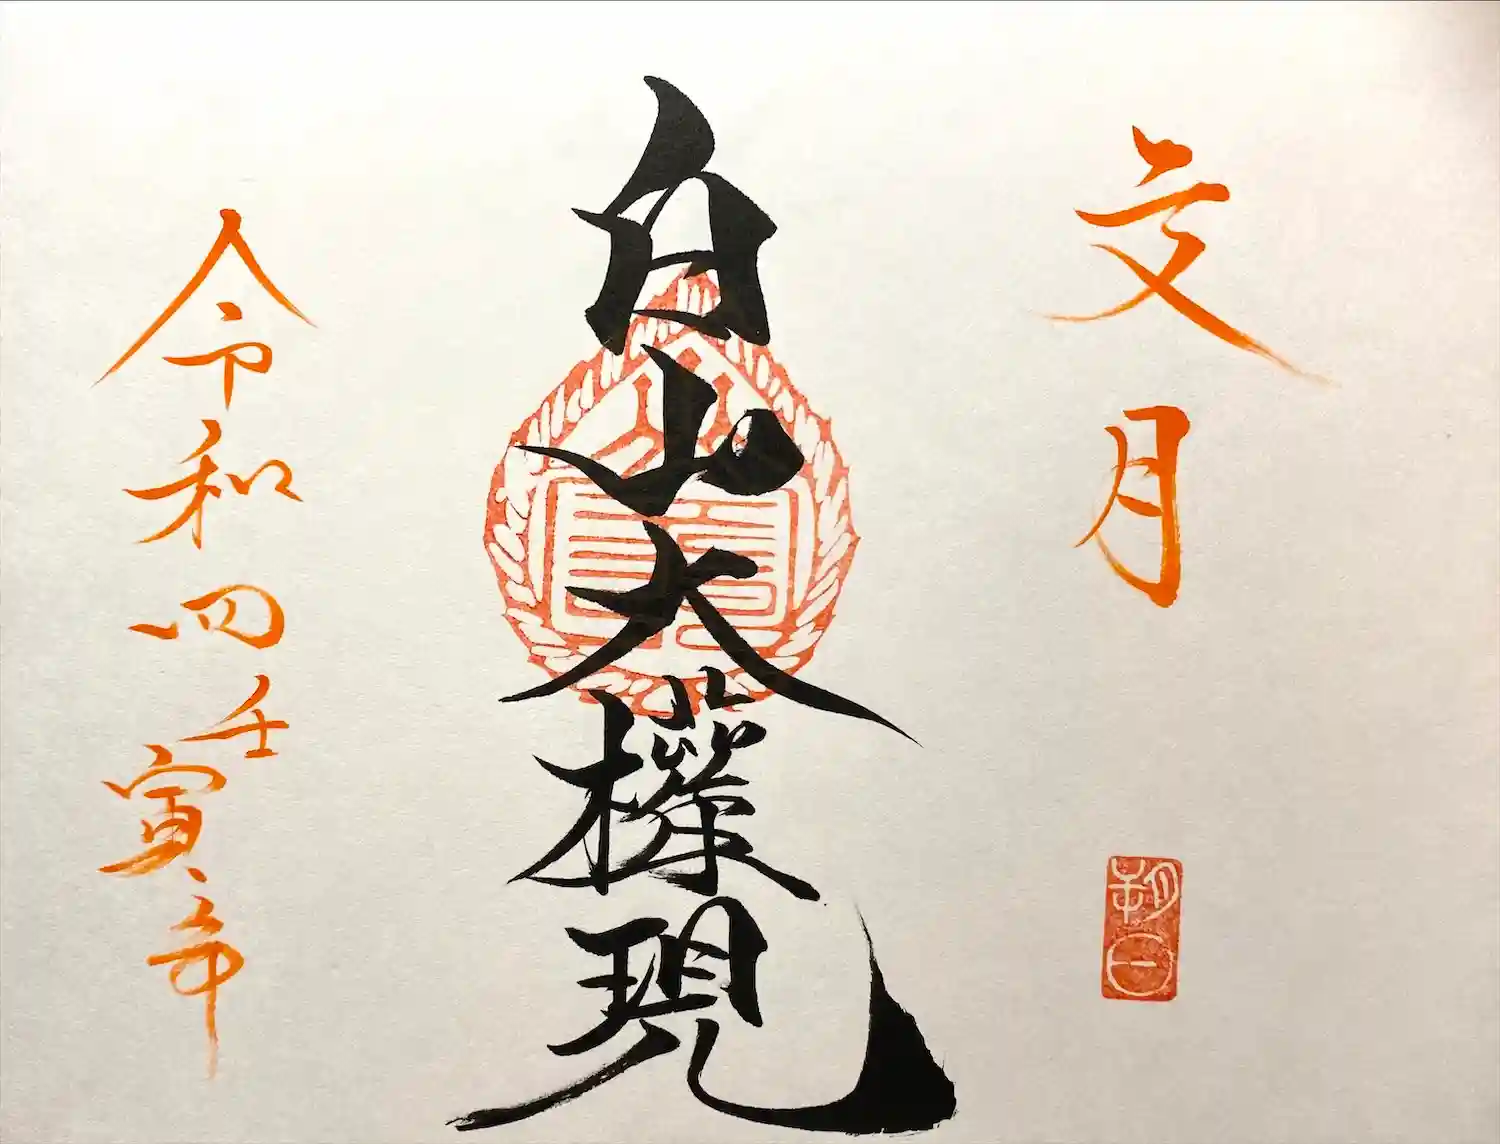 文月
朔日
白山大権現
令和四壬寅年